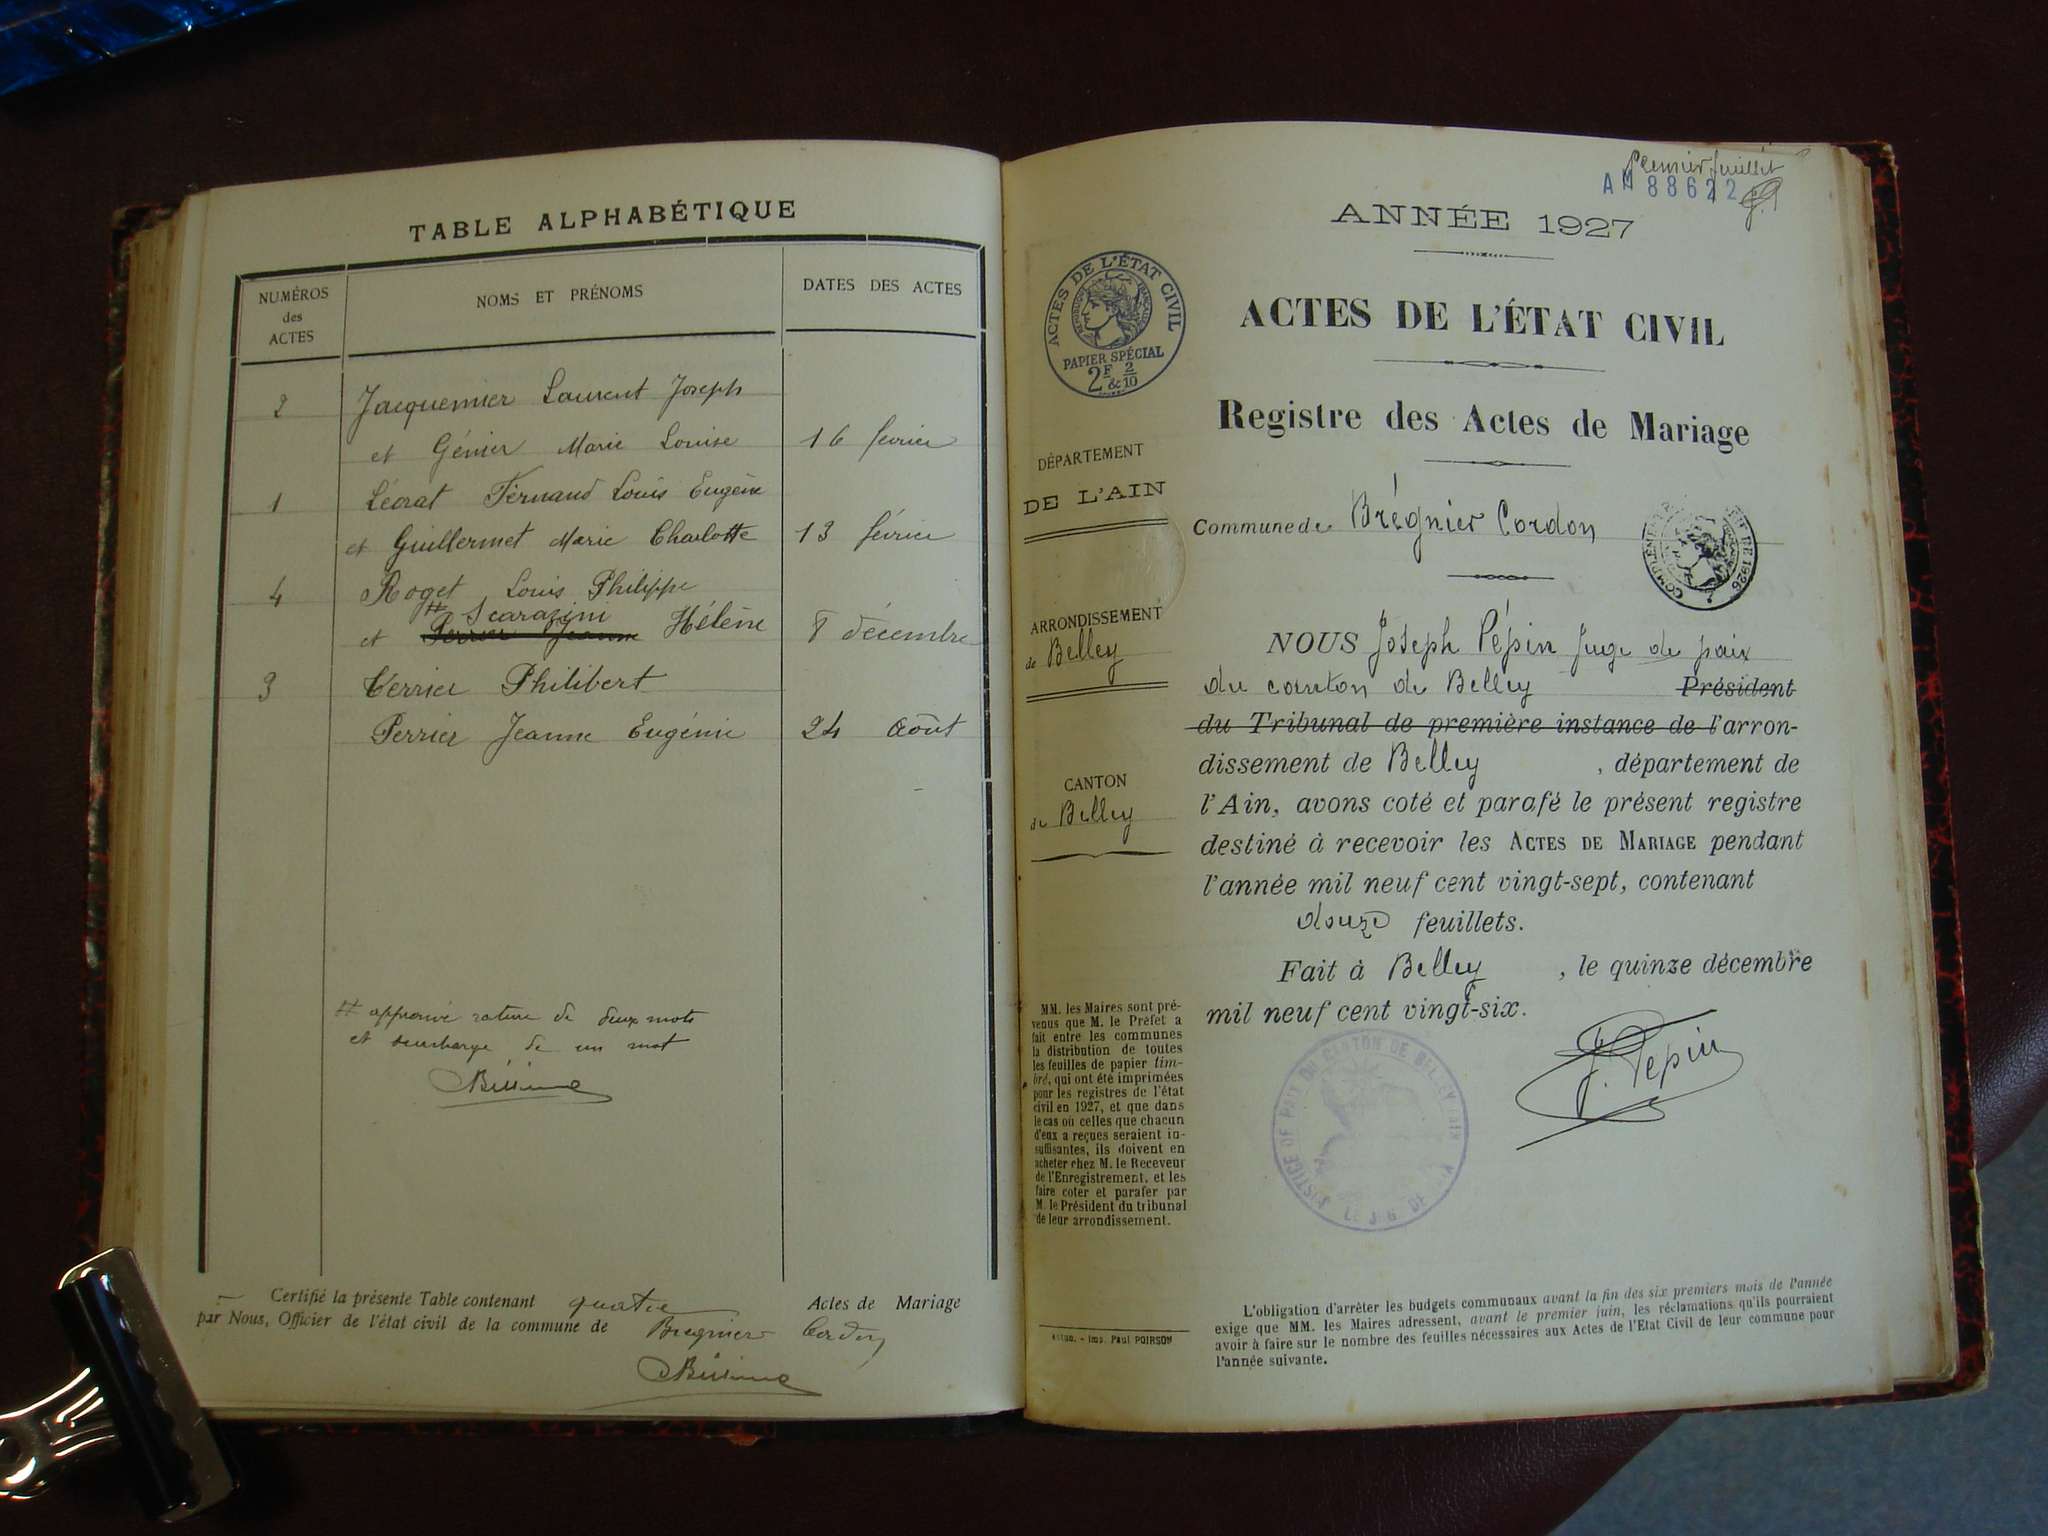 TABLE ALPHABÉTIQUE
NUMÉROS des ACTES
NOMS ET PRÉNOMS
DATES DES ACTES
2 Jacquemier Laurent Joseph
et Génier Marie Louise 16 février
1 Léorat Fernand Louis Eugène
et Guillermet Marie Charlotte 13 février
4 Roget Louis Philippe
# Scarazini
et Perrier Jeanne Hélène 8 décembre
3 Verrier Philibert
Perrier Jeanne Eugénie 24 Août
# approuvé rature de deux mots
et surcharge de un mot
Certifié la présente Table contenant quatre Actes de Mariage
par Nous, Officier de l'état civil de la commune de Bregnier Cordon
Premier feuillet
AN 88622
ANNÉE 1927
ACTES DE L'ÉTAT CIVIL
RÉPUBLIQUE FRANÇAISE
PAPIER SPÉCIAL
2F & 2/10
ACTES DE L'ÉTAT CIVIL
Registre des Actes de Mariage
DÉPARTEMENT
DE L'AIN
Commune de Brégnier Cordon
ARRONDISSEMENT
de Belley
CANTON
de Belley
NOUS Joseph Pépin juge de paix
du canton de Belley Président
du Tribunal de première instance de l'arron-
dissement de Belley, département de
l'Ain, avons coté et parafé le présent registre
destiné à recevoir les ACTES DE MARIAGE pendant
l'année mil neuf cent vingt-sept, contenant
douze feuillets.
Fait à Belley, le quinze décembre
mil neuf cent vingt-six.
J. Pepin
JUSTICE DE PAIX DU CANTON DE BELLEY (AIN)
MM. les Maires sont pré-
venus que M. le Préfet a
fait entre les communes
la distribution de toutes
les feuilles de papier tim-
bré, qui ont été imprimées
pour les registres de l'état
civil en 1927, et que dans
le cas où celles que chacun
d'eux a reçues seraient in-
suffisantes, ils doivent en
acheter chez M. le Receveur
de l'Enregistrement, et les
faire coter et parafer par
M. le Président du tribunal
de leur arrondissement.
Imp. Paul POIRSON
L'obligation d'arrêter les budgets communaux avant la fin des six premiers mois de l'année
exige que MM. les Maires adressent, avant le premier juin, les réclamations qu'ils pourraient
avoir à faire sur le nombre des feuilles nécessaires aux Actes de l'Etat Civil de leur commune pour
l'année suivante.